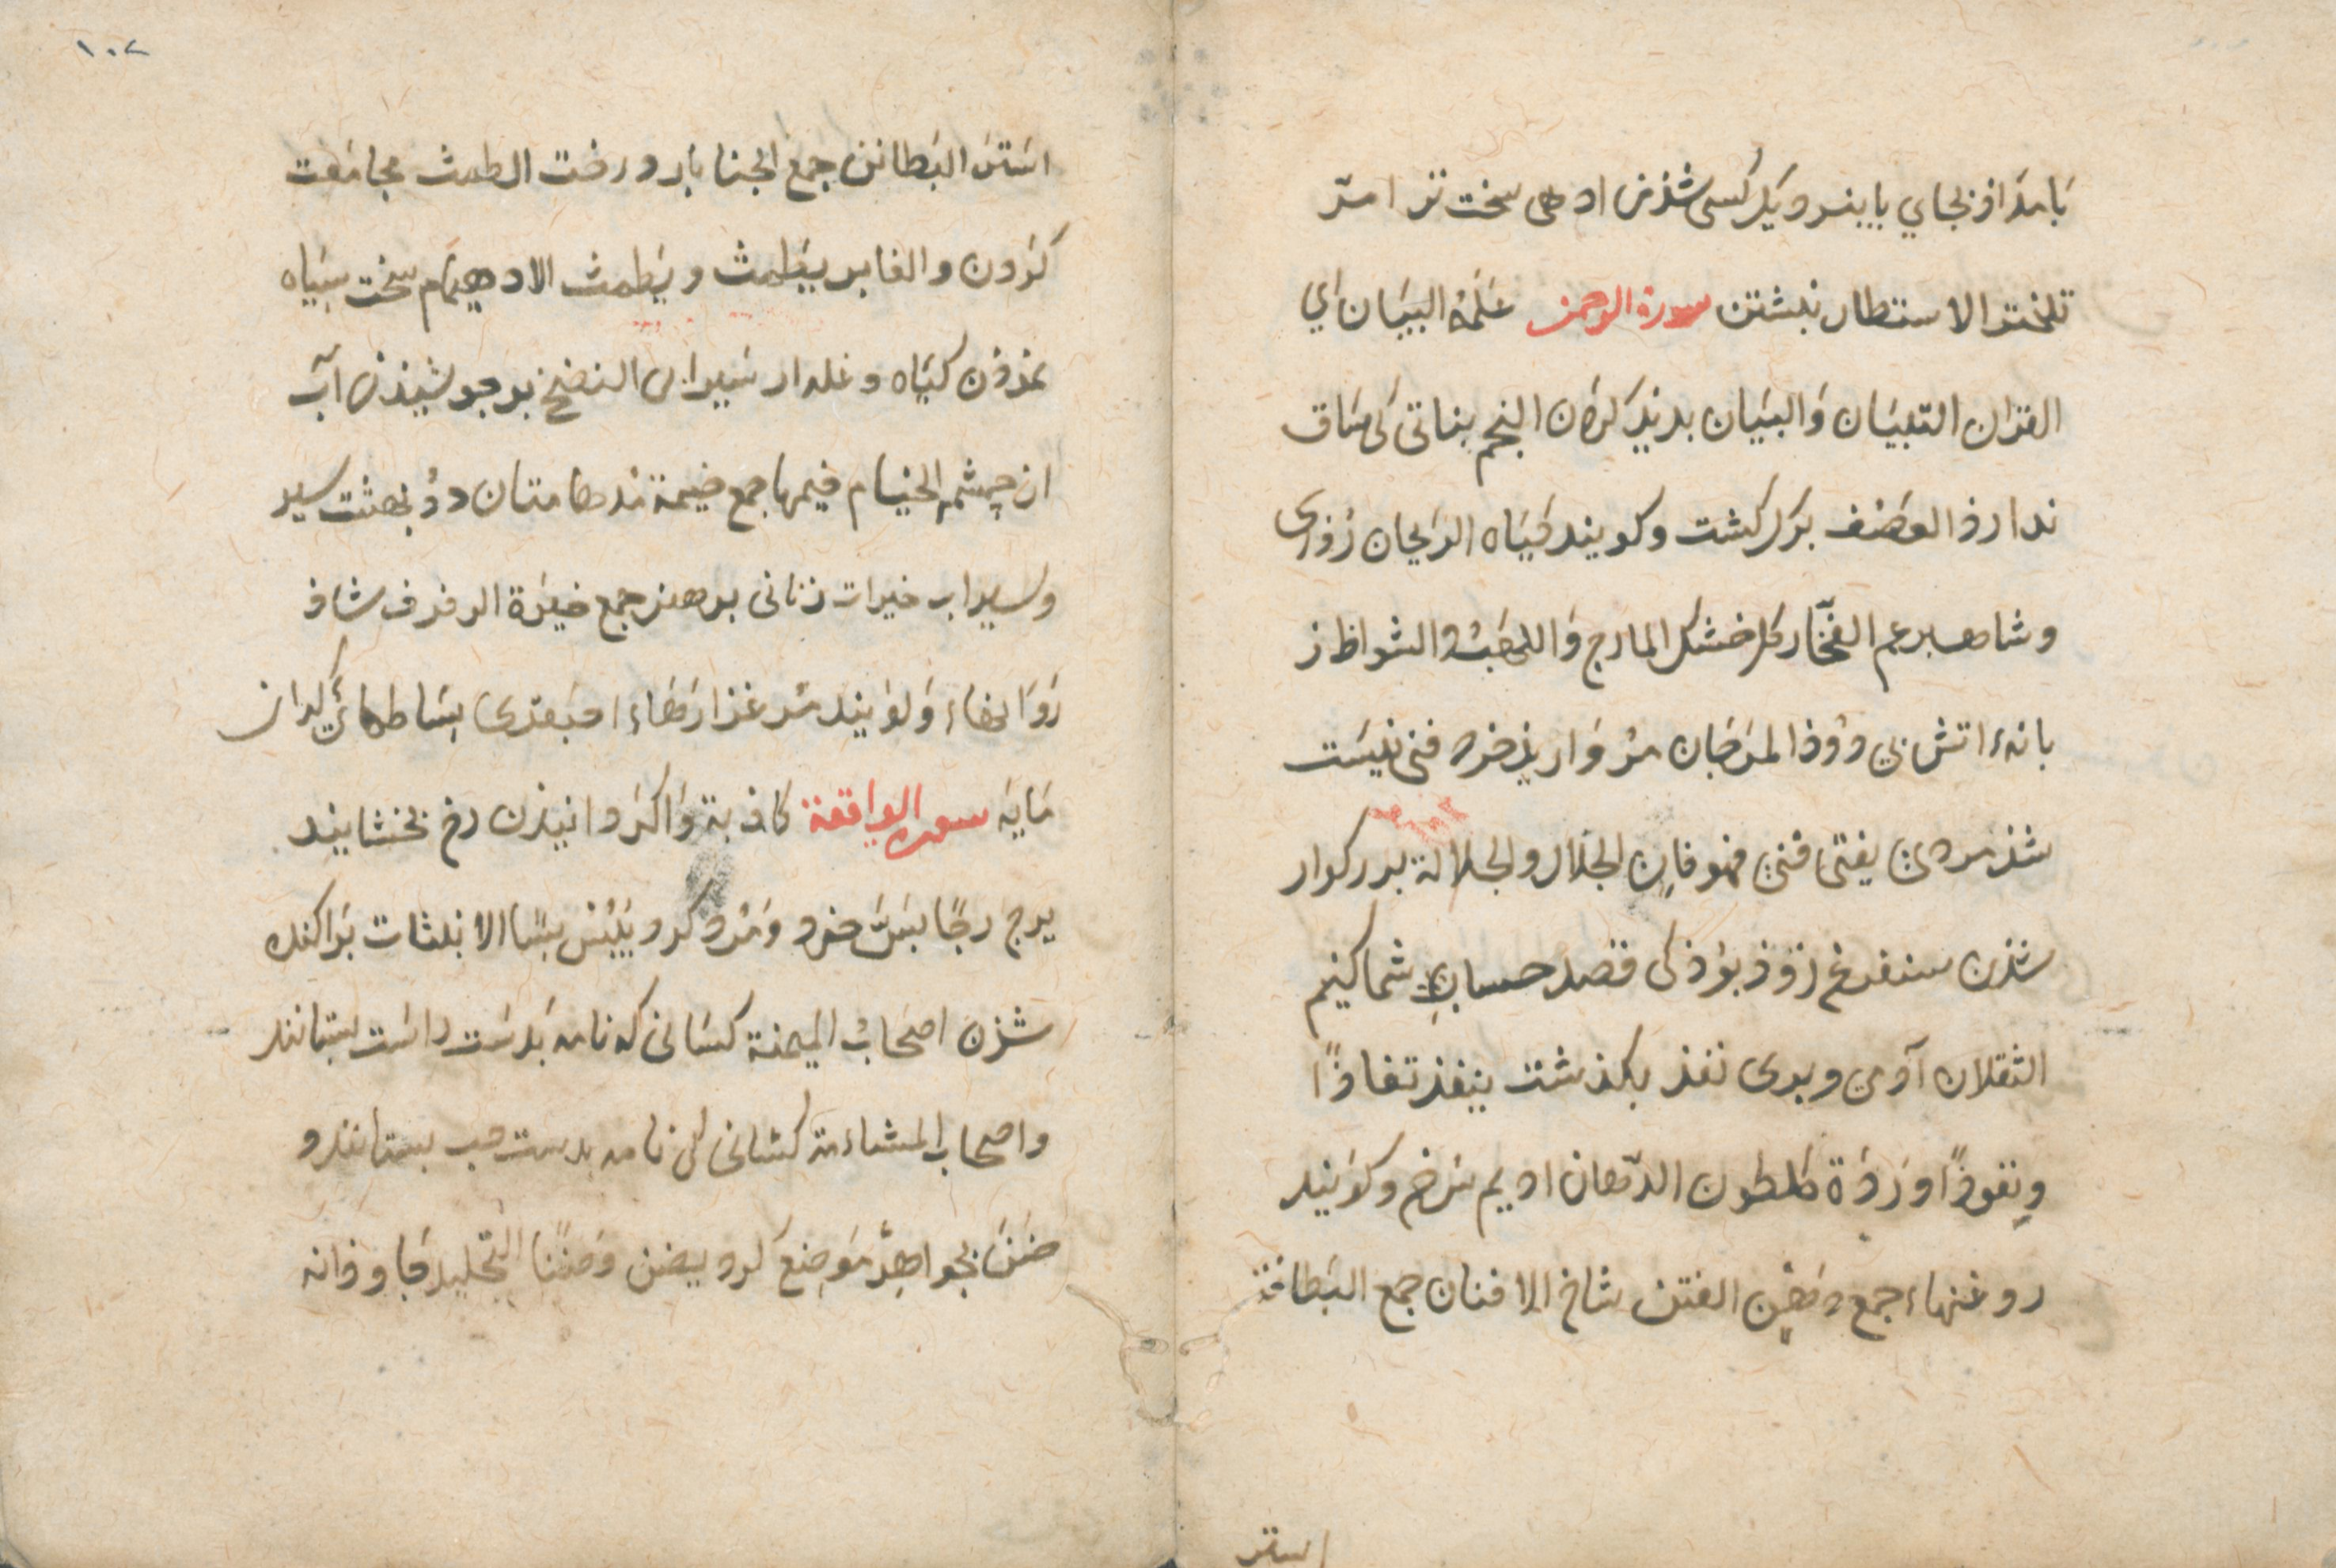 بامداذ بجاي يا بنزديك كسى شذن ادهى سخت تر امرّ
تلختر الاستطار نبشتن سورة الرحمن علّمه البيان اي
القران التبيان والبيان بديد كردن النجم نباتى كى ساق
ندارذ العصف برك كشت وكويند كياه الريحان روزى
وشاهسبرغم الفخّار كل خشك المارج واللهب والشواظ ز
بانهء اتش بي دوذ المرجان مرواريذ خرد فنى نيست
شذ مردن يفنى فنى فهو فان الجلال والجلالة بزركوار
شذن سنفرغ زوذ بوذ كى قصد حساب شما كنيم
الثقلان آدمى وبرى نفذ بكذشت ينفذ نفاذًا
ونفوذًا وردة كلطون الدّهان اديم سرخ وكويند
روغنهاء جمع دهن الفنن شاخ الافنان جمع البطانة
استر
١٠٢
استر البطائن جمع الجنا بار درخت الطمث مجامعت
كردن والغابر يطمث ويطمث الادهيمام سخت سياه
نمودن كياه وغله از سيرابى النضخ برجوشيذن آب
از چشمه الخيام خيمها جمع خيمة مدهامتان دو بهشت سبز
وسيراب خيرات زنانى بر هنر جمع خيرة الرفرف شاذ
روانهاء وكويند مرغزارهاء عبقرى بساطهاى كران
مايه سوره الواقعة كاذبة واكردانيذن رج بخشانيد
يرج رجّا بسّ خرد ومرد كرد يبسّ بسّا الانبثاث براكنده
شذن اصحاب الميمنة كسانى كه نامه بدست راست بستانند
واصحاب المشاءمة كسانى كى نامه بدست چپ بستانند و
ضن بجواهر موضع كرد يضن وضنّا التخليد جاوذانه